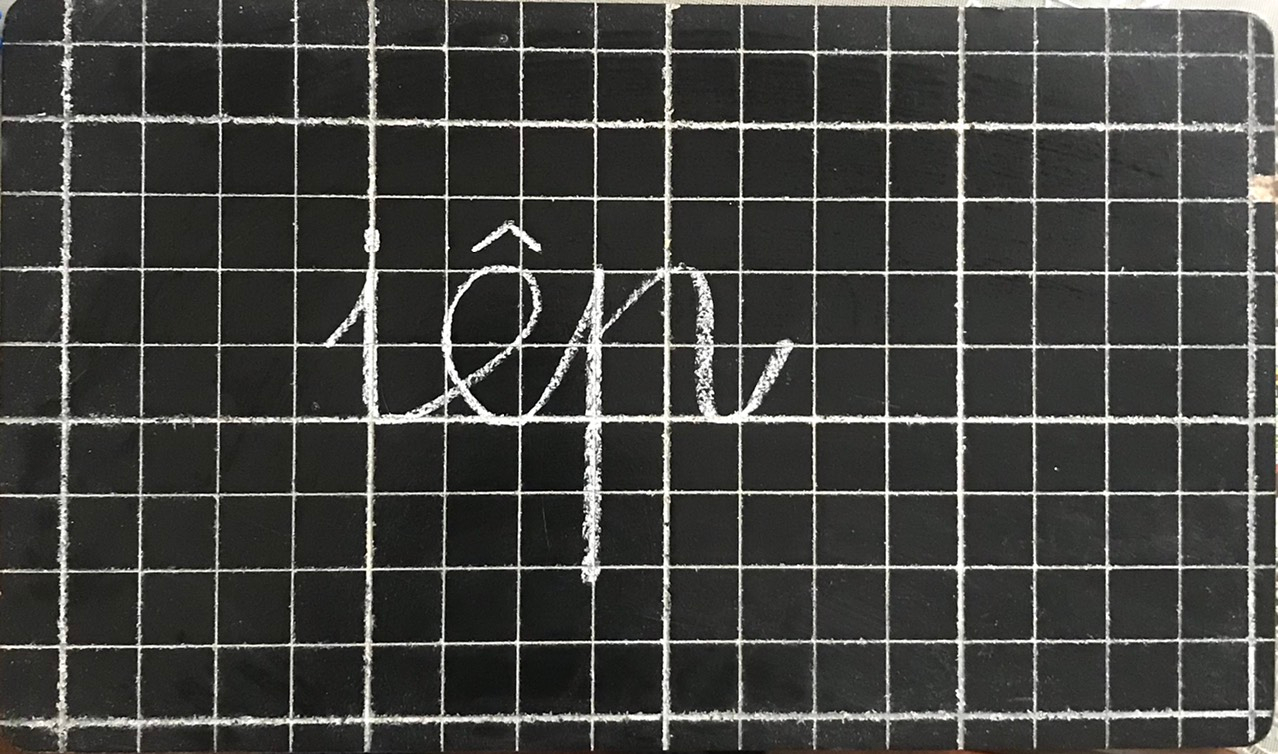 iêp